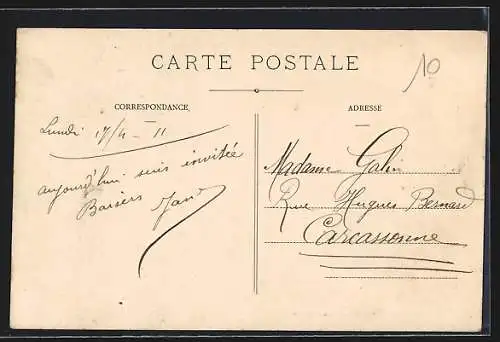 10
CARTE POSTALE
CORRESPONDANCE
ADRESSE
Lundi 17/4 - 11
aujourd'hui suis invitée
Baisers
Madame Galin
Rue Hugues Bernard
Carcassonne